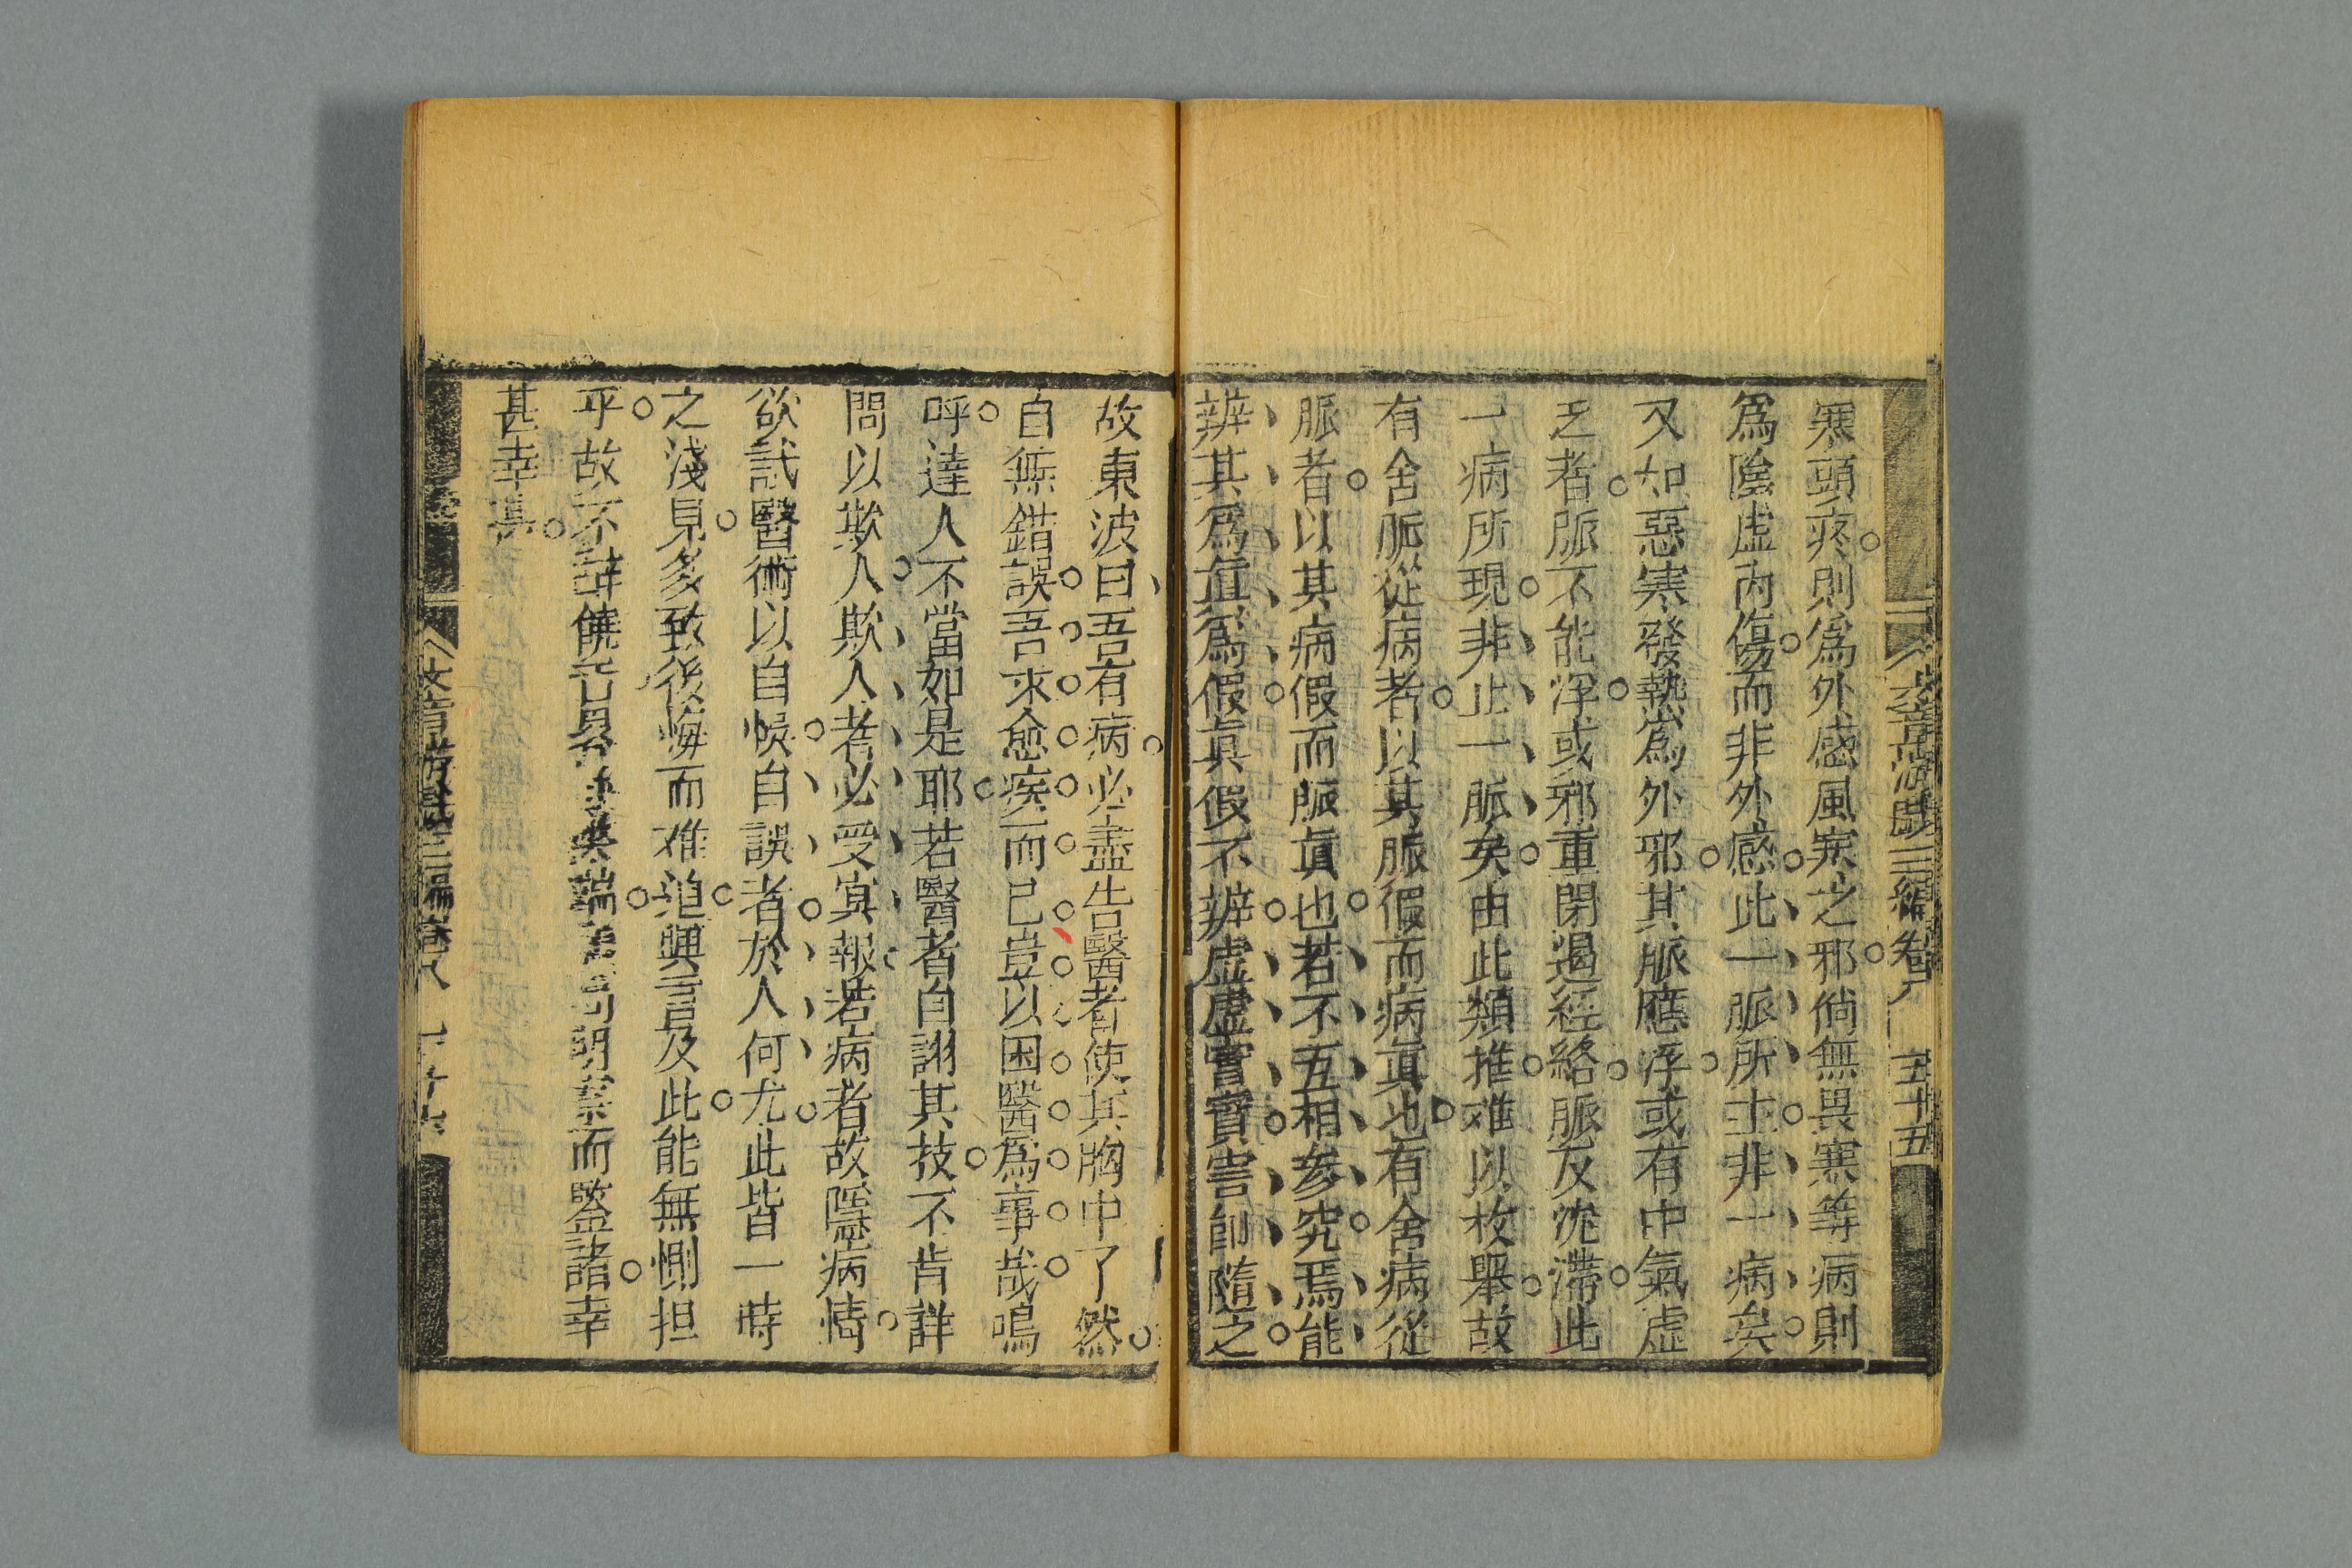 寒頭疼則爲外感風寒之邪倘無畏寒等病則
爲陰虛內傷而非外感此一脈所主非一病矣
又如惡寒發熱爲外邪其脈應浮或有中氣虛
乏者脈不能浮或邪重閉遏經絡脈反沈滯此
一病所現非止一脈矣由此類推难以枚舉故
有舍脈從病者以其脈假而病眞也有舍病從
脈者以其病假而脈眞也若不互相參究焉能
辨其爲眞爲假眞假不辨虛虛實實害卽隨之
三編卷八
五十五
故東波曰吾有病必盡告醫者使其胸中了然
自無錯誤吾求愈疾而已豈以困醫爲事哉嗚
呼達人不當如是耶若醫者自詡其技不肯詳
問以欺人欺人者必受冥報若病者故隱病情
欲試醫術以自悞自誤者於人何尤此皆一時
之淺見多致後悔而难追興言及此能無惻怛
乎故不辭饒舌具明案而鑒諸幸
甚幸甚
三編卷八